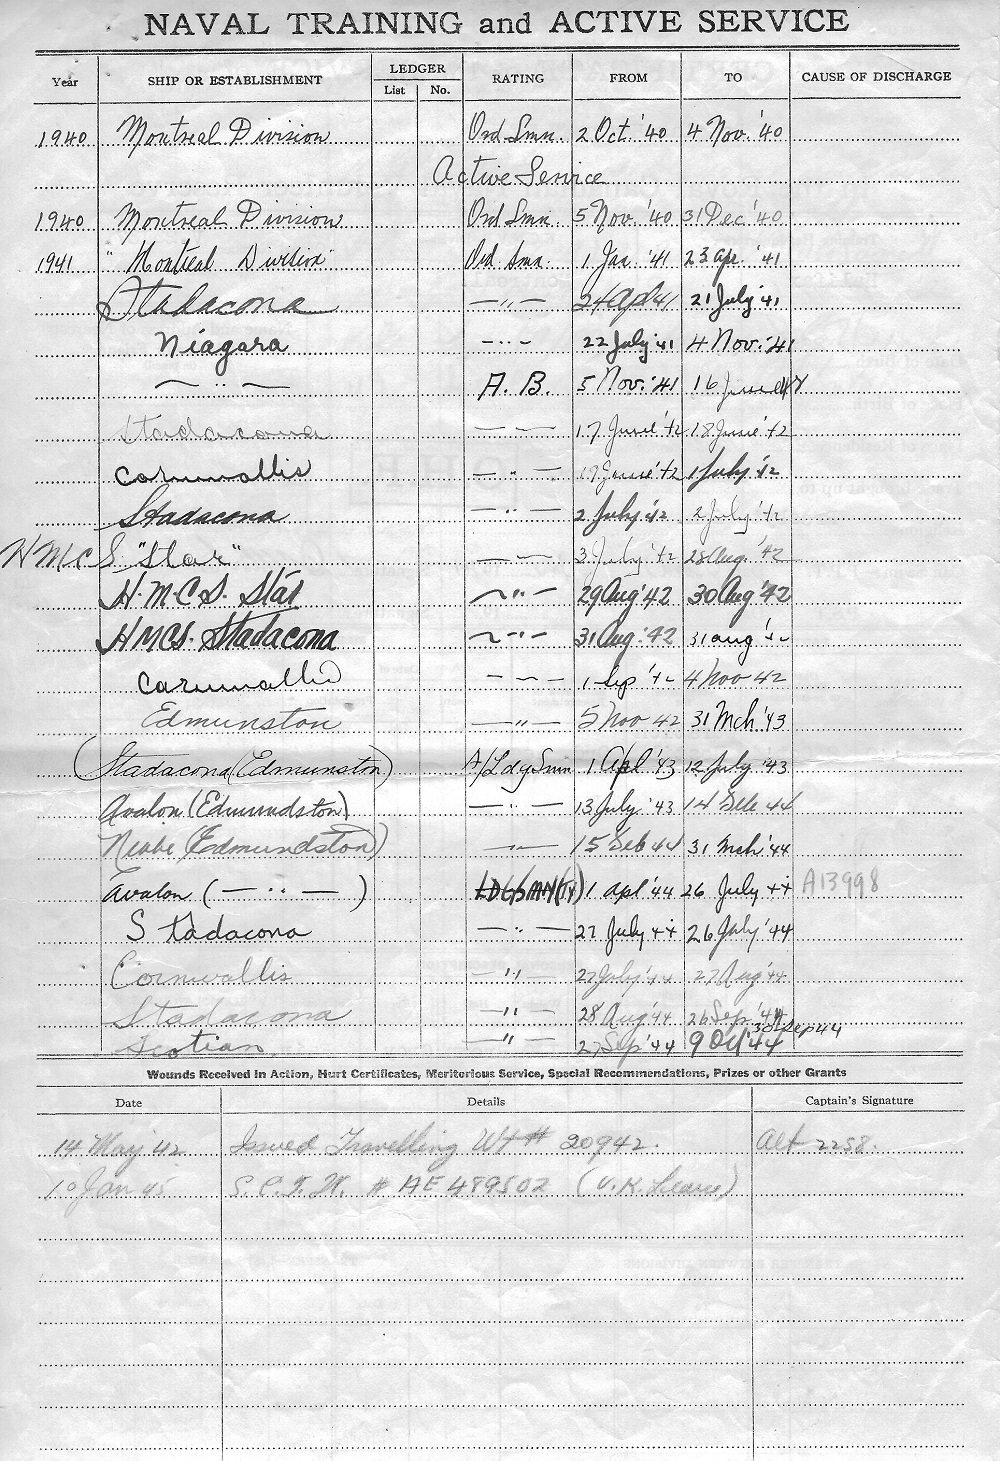 NAVAL TRAINING and ACTIVE SERVICE
Year SHIP OR ESTABLISHMENT LEDGER RATING FROM TO CAUSE OF DISCHARGE
List No.
1940 Montreal Division Ord Smn. 2 Oct. '40 4 Nov. '40
Active Service
1940 Montreal Division Ord Smn. 5 Nov. '40 31 Dec '40
1941 "Montreal Division" Ord Smn. 1 Jan. '41 23 apr. '41
Stadacona — " — 24 Apl 41 21 July '41
Niagara — " — 22 July '41 4 Nov. '41
— " — A. B. 5 Nov. '41 16 June 42
Stadacona — — 17 June '42 18 June '42
Cornwallis — " — 19 June '42 1 July '42
Stadacona — " — 2 July '42 2 July '42
HMCS "Star" — — 3 July '42 28 Aug. '42
H.M.C.S. Star — " — 29 Aug '42 30 Aug '42
HMCS. Stadacona — " — 31 Aug. '42 31 aug '42
Cornwallis — — 1 Sep '42 4 Nov 42
Edmunston — " — 5 Nov 42 31 Mch '43
Stadacona (Edmunston) A/Ldg Smn 1 Apl '43 12 July '43
Avalon (Edmundston) — " — 13 July '43 14 44
(Edmundston) — " — 15 Feb 44 31 Mch '44
Avalon ( — " — ) 1 apl '44 26 July 44 A13998
Stadacona — " — 27 July 44 26 July '44
Cornwallis — " — 27 July '44 27 Aug '44
Stadacona — " — 28 Aug '44 26 Sep '44
30 Sep 44
Scotian " 27 Sep '44 9 Oct '44
Wounds Received in Action, Hurt Certificates, Meritorious Service, Special Recommendations, Prizes or other Grants
Date Details Captain's Signature
14 May 42 Issued Travelling Wt # 20942. Alt 2258.
10 Jan 45 # AE 489502 (U.K. Leave)